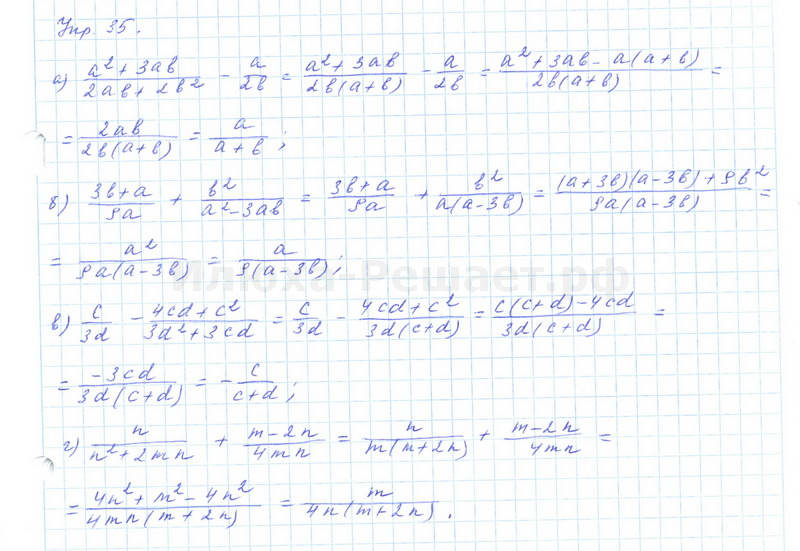 Упр. 35.
а) (a² + 3ab)/(2ab + 2b²) - a/2b = (a² + 3ab)/(2b(a+b)) - a/2b = (a² + 3ab - a(a+b))/(2b(a+b)) =
= 2ab/(2b(a+b)) = a/(a+b) ;
б) (3b+a)/9a + b²/(a²-3ab) = (3b+a)/9a + b²/(a(a-3b)) = ((a+3b)(a-3b) + 9b²)/(9a(a-3b)) =
= a²/(9a(a-3b)) = a/(9(a-3b)) ;
Илюха-Решает.рф
в) c/3d - (4cd + c²)/(3d² + 3cd) = c/3d - (4cd + c²)/(3d(c+d)) = (c(c+d) - 4cd)/(3d(c+d)) =
= -3cd/(3d(c+d)) = - c/(c+d) ;
г) n/(n² + 2mn) + (m-2n)/4mn = n/(m(m+2n)) + (m-2n)/4mn =
= (4n² + m² - 4n²)/(4mn(m+2n)) = m/(4n(m+2n)) .